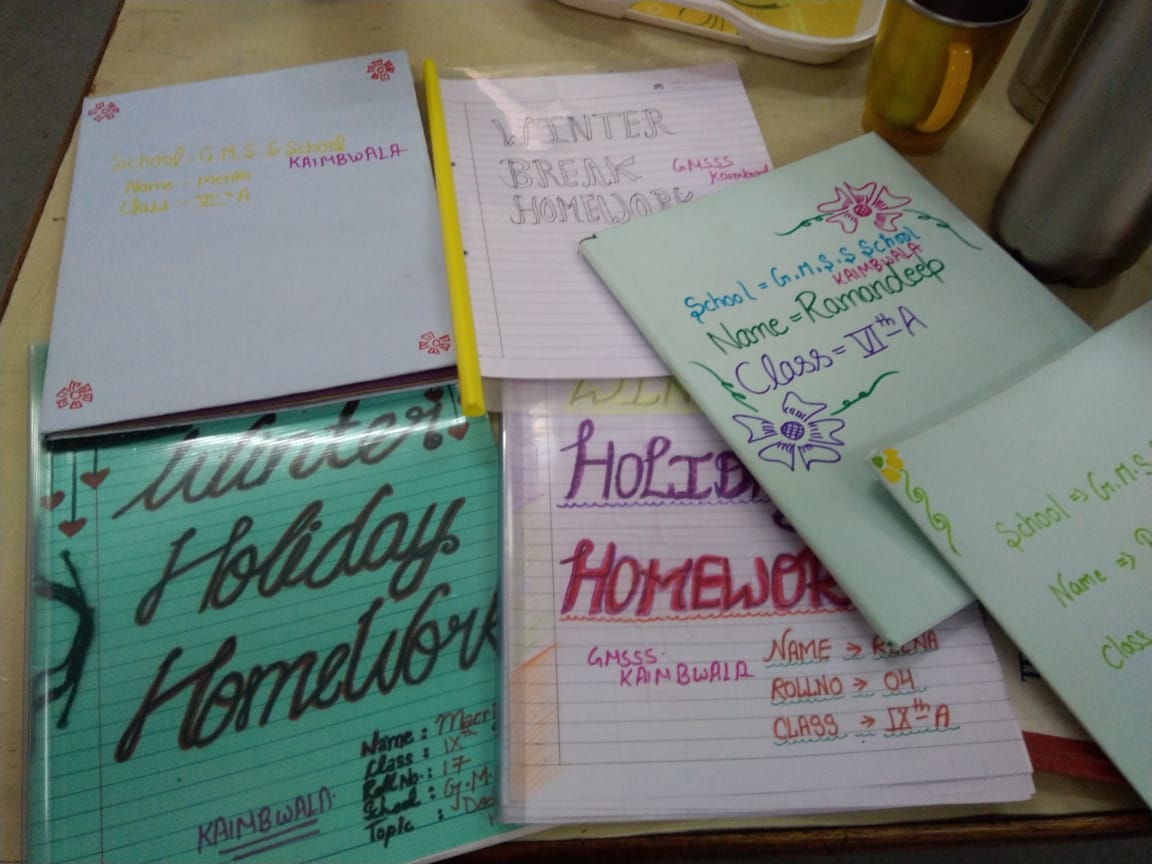 School - G.M.S.S School
KAIMBWALA
Name - Menka
Class - VIth A
WINTER
BREAK
HOMEWORK
GMSSS
School = G.M.S.S School
KAIMBWALA
Name = Ramandeep
Class = VIth-A
Winter
Holiday
Homework
Name :
Class : IXth
Roll No. : 17
School : G.M.
Topic :
KAIMBWALA
HOMEWOR
GMSSS.
KAIMBWALA
NAME → REENA
ROLLNO → 04
CLASS → IXth-A
School => G.M.S
Name =>
Class